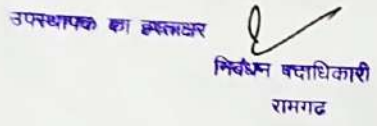 उपस्थापक का हस्ताक्षर
निबंधन पदाधिकारी
रामगढ